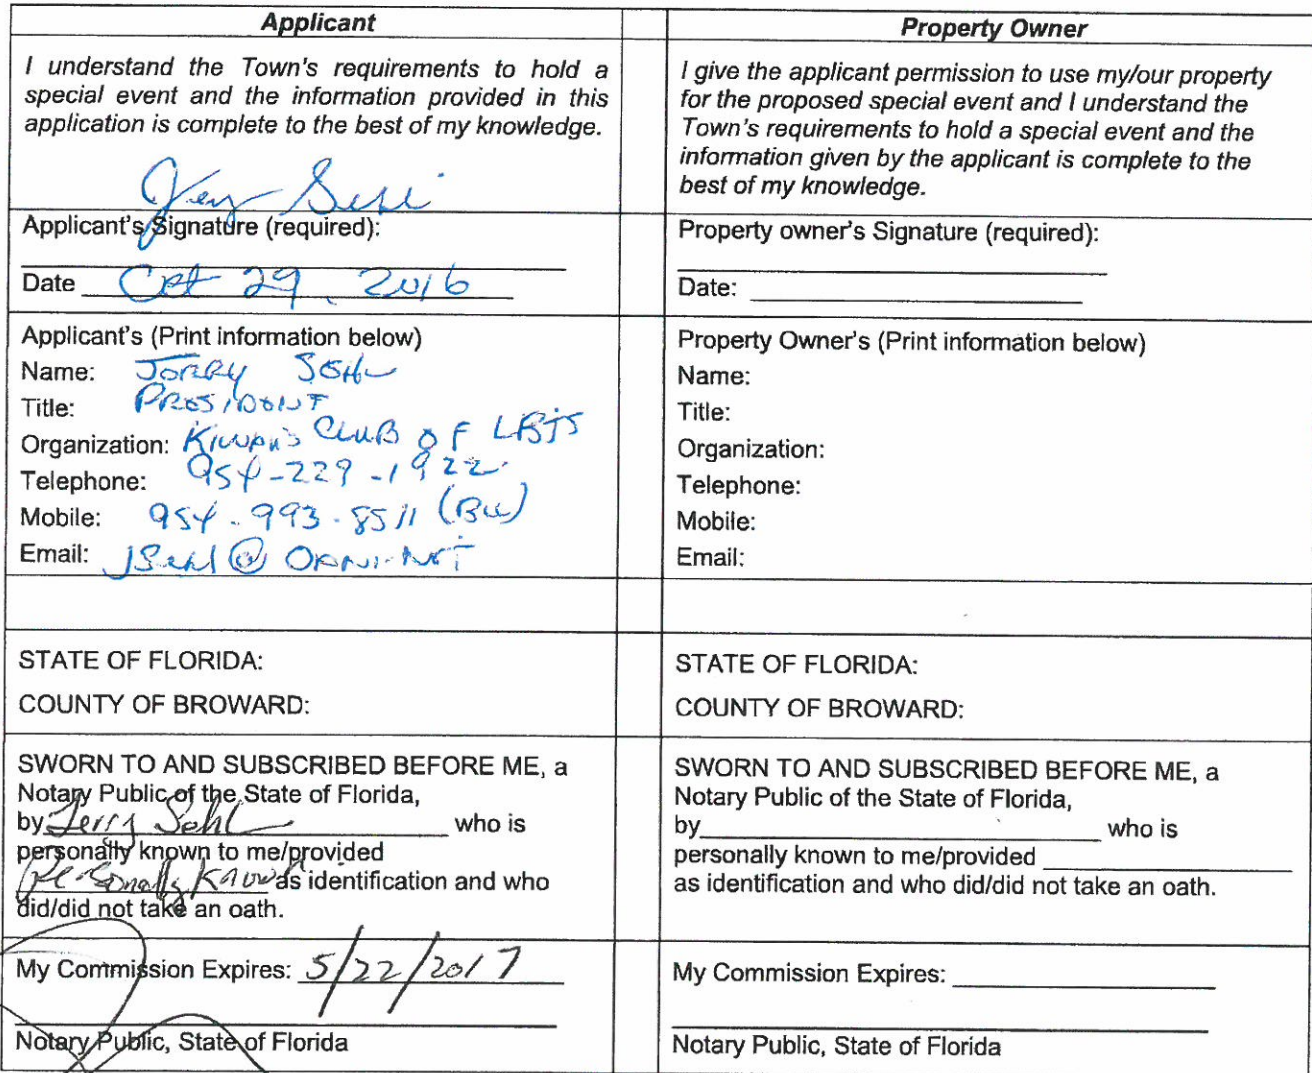 Applicant
I understand the Town's requirements to hold a
special event and the information provided in this
application is complete to the best of my knowledge.
Applicant's Signature (required):
Date Oct 29, 2016
Applicant's (Print information below)
Name: JERRY SEHL
Title: PRESIDENT
Organization: KIWANIS CLUB OF LBTS
Telephone: 954-229-1922
Mobile: 954-993-8511
Email: JSehl@
STATE OF FLORIDA:
COUNTY OF BROWARD:
SWORN TO AND SUBSCRIBED BEFORE ME, a
Notary Public of the State of Florida,
by Jerry Sehl who is
personally known to me/provided
Personally Known as identification and who
did/did not take an oath.
My Commission Expires: 5/22/2017
Notary Public, State of Florida
Property Owner
I give the applicant permission to use my/our property
for the proposed special event and I understand the
Town's requirements to hold a special event and the
information given by the applicant is complete to the
best of my knowledge.
Property owner's Signature (required):
Date:
Property Owner's (Print information below)
Name:
Title:
Organization:
Telephone:
Mobile:
Email:
STATE OF FLORIDA:
COUNTY OF BROWARD:
SWORN TO AND SUBSCRIBED BEFORE ME, a
Notary Public of the State of Florida,
by who is
personally known to me/provided
as identification and who did/did not take an oath.
My Commission Expires:
Notary Public, State of Florida